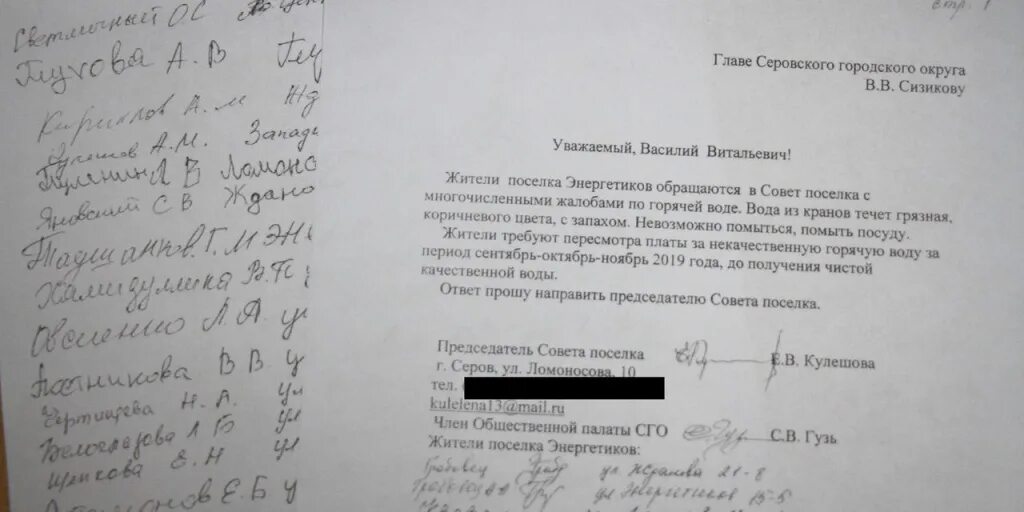 Светличный О.С
Глухова А. В Глу
Кириллов А. М Жд
Кулешов А.М. Запади
Туленина В Ломоно
Яновский С В Ждано
Ташланков. Г. М ЭН
Хамидуллина В.
Овсиенко Л. А. ул
Постникова В В. у
Чертищева Н. А. ул
Белоглазова Л Б ул
Щепкова Е. Н ул
Е. Б у
Стр. 1
Главе Серовского городского округа
В.В. Сизикову
Уважаемый, Василий Витальевич!
Жители поселка Энергетиков обращаются в Совет поселка с
многочисленными жалобами по горячей воде. Вода из кранов течет грязная,
коричневого цвета, с запахом. Невозможно помыться, помыть посуду.
Жители требуют пересмотра платы за некачественную горячую воду за
период сентябрь-октябрь-ноябрь 2019 года, до получения чистой
качественной воды.
Ответ прошу направить председателю Совета поселка.
Председатель Совета поселка Е.В. Кулешова
г. Серов, ул. Ломоносова, 10
тел.
kulelena13@mail.ru
Член Общественной палаты СГО С.В. Гузь
Жители поселка Энергетиков:
Гробовец ул 21-8
ул Энергетиков 15-5